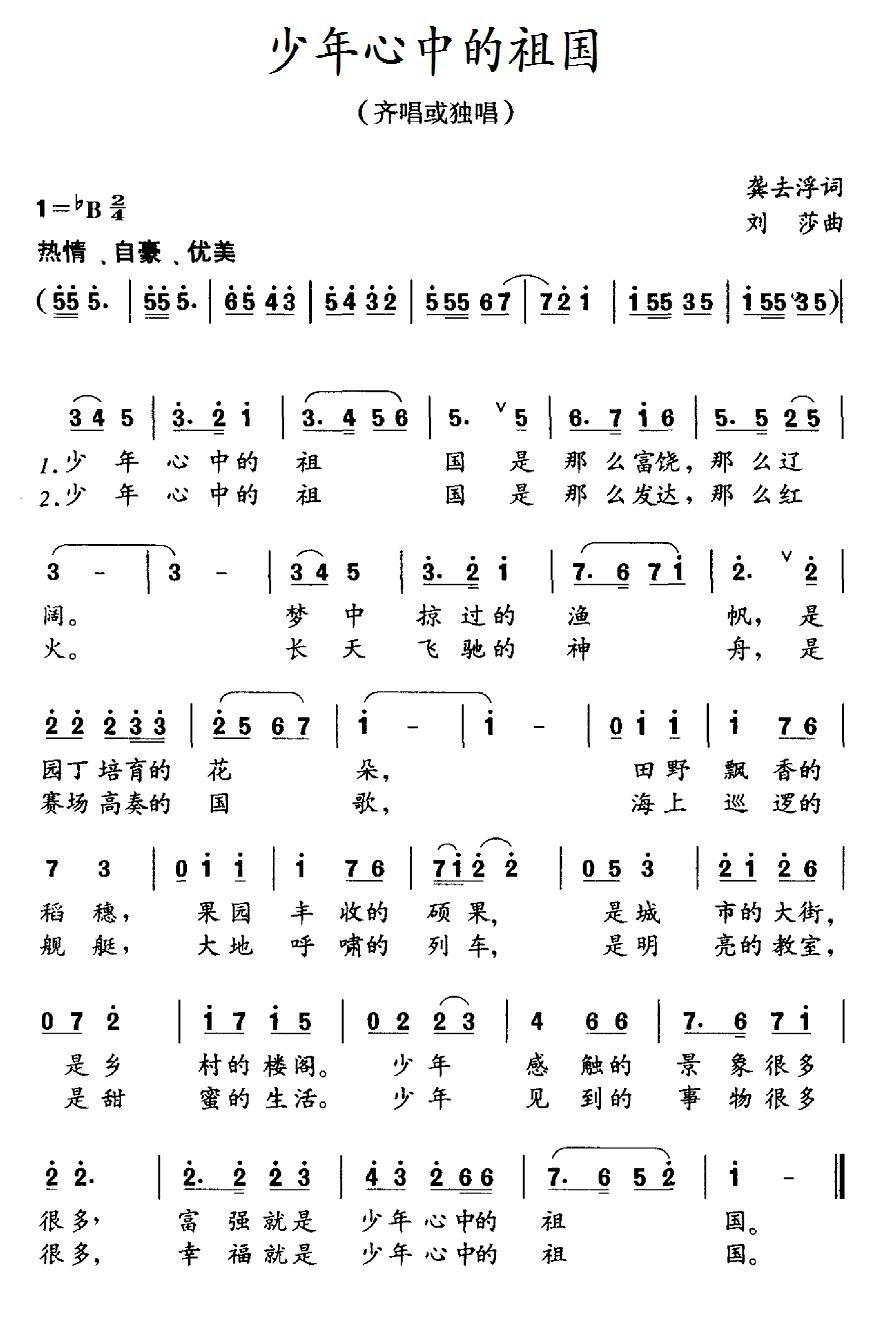 少年心中的祖国
（齐唱或独唱）
龚去浮词
1=♭B 2/4
刘 莎曲
热情、自豪、优美
(55 5. | 55 5. | 65 43 | 54 32 | 555 67 | 72 1 | 155 35 | 155 35)|
34 5 | 3. 2 1 | 3. 4 56 | 5. ∨ 5 | 6. 7 16 | 5. 5 25 |
1.少 年 心 中的 祖 国 是 那 么富饶，那 么辽
2.少 年 心 中的 祖 国 是 那 么发达，那 么红
3 - | 3 - | 34 5 | 3. 2 1 | 7. 6 71 | 2. ∨ 2 |
阔。 梦 中 掠 过的 渔 帆，是
火。 长 天 飞 驰的 神 舟，是
22 233 | 25 67 | 1 - | 1 - | 01 1 | 1 76 |
园丁 培育的 花 朵， 田野 飘 香的
赛场 高奏的 国 歌， 海上 巡 逻的
7 3 | 01 1 | 1 76 | 712 2 | 05 3 | 21 26 |
稻 穗， 果园 丰 收的 硕 果， 是城 市的 大街，
舰 艇， 大地 呼 啸的 列 车， 是明 亮的 教室，
07 2 | 17 15 | 02 23 | 4 66 | 7. 6 71 |
是乡 村的 楼阁。 少 年 感 触的 景 象 很多
是甜 蜜的 生活。 少 年 见 到的 事 物 很多
2 2. | 2. 2 23 | 43 266 | 7. 6 52 | 1 - ‖
很多， 富 强就是 少年 心中的 祖 国。
很多， 幸 福就是 少年 心中的 祖 国。